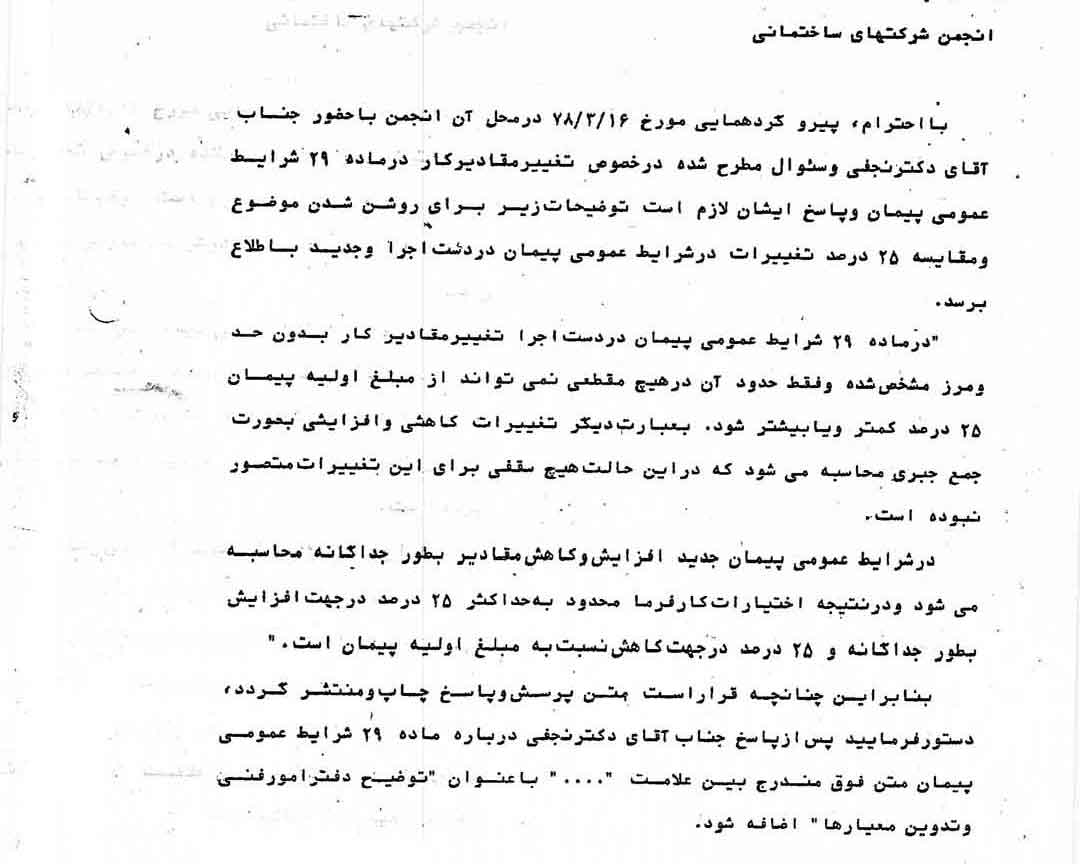 انجمن شرکتهای ساختمانی
بااحترام، پیرو گردهمایی مورخ ۷۸/۳/۱۶ درمحل آن انجمن باحضور جناب
آقای دکترنجفی وسئوال مطرح شده درخصوص تغییرمقادیرکار درماده ۲۹ شرایط
عمومی پیمان وپاسخ ایشان لازم است توضیحات زیر برای روشن شدن موضوع
ومقایسه ۲۵ درصد تغییرات درشرایط عمومی پیمان دردست اجرا وجدید باطلاع
برسد.
"درماده ۲۹ شرایط عمومی پیمان دردست اجرا تغییرمقادیر کار بدون حد
ومرز مشخص شده وفقط حدود آن درهیچ مقطعی نمی تواند از مبلغ اولیه پیمان
۲۵ درصد کمتر ویابیشتر شود. بعبارت دیگر تغییرات کاهشی وافزایشی بصورت
جمع جبری محاسبه می شود که دراین حالت هیچ سقفی برای این تغییرات متصور
نبوده است.
درشرایط عمومی پیمان جدید افزایش وکاهش مقادیر بطور جداگانه محاسبه
می شود ودرنتیجه اختیارات کارفرما محدود به حداکثر ۲۵ درصد درجهت افزایش
بطور جداگانه و ۲۵ درصد درجهت کاهش نسبت به مبلغ اولیه پیمان است."
بنابراین چنانچه قراراست متن پرسش وپاسخ چاپ ومنتشر گردد،
دستورفرمایید پس ازپاسخ جناب آقای دکترنجفی درباره ماده ۲۹ شرایط عمومی
پیمان متن فوق مندرج بین علامت "...." باعنوان "توضیح دفترامورفنی
وتدوین معیارها" اضافه شود.